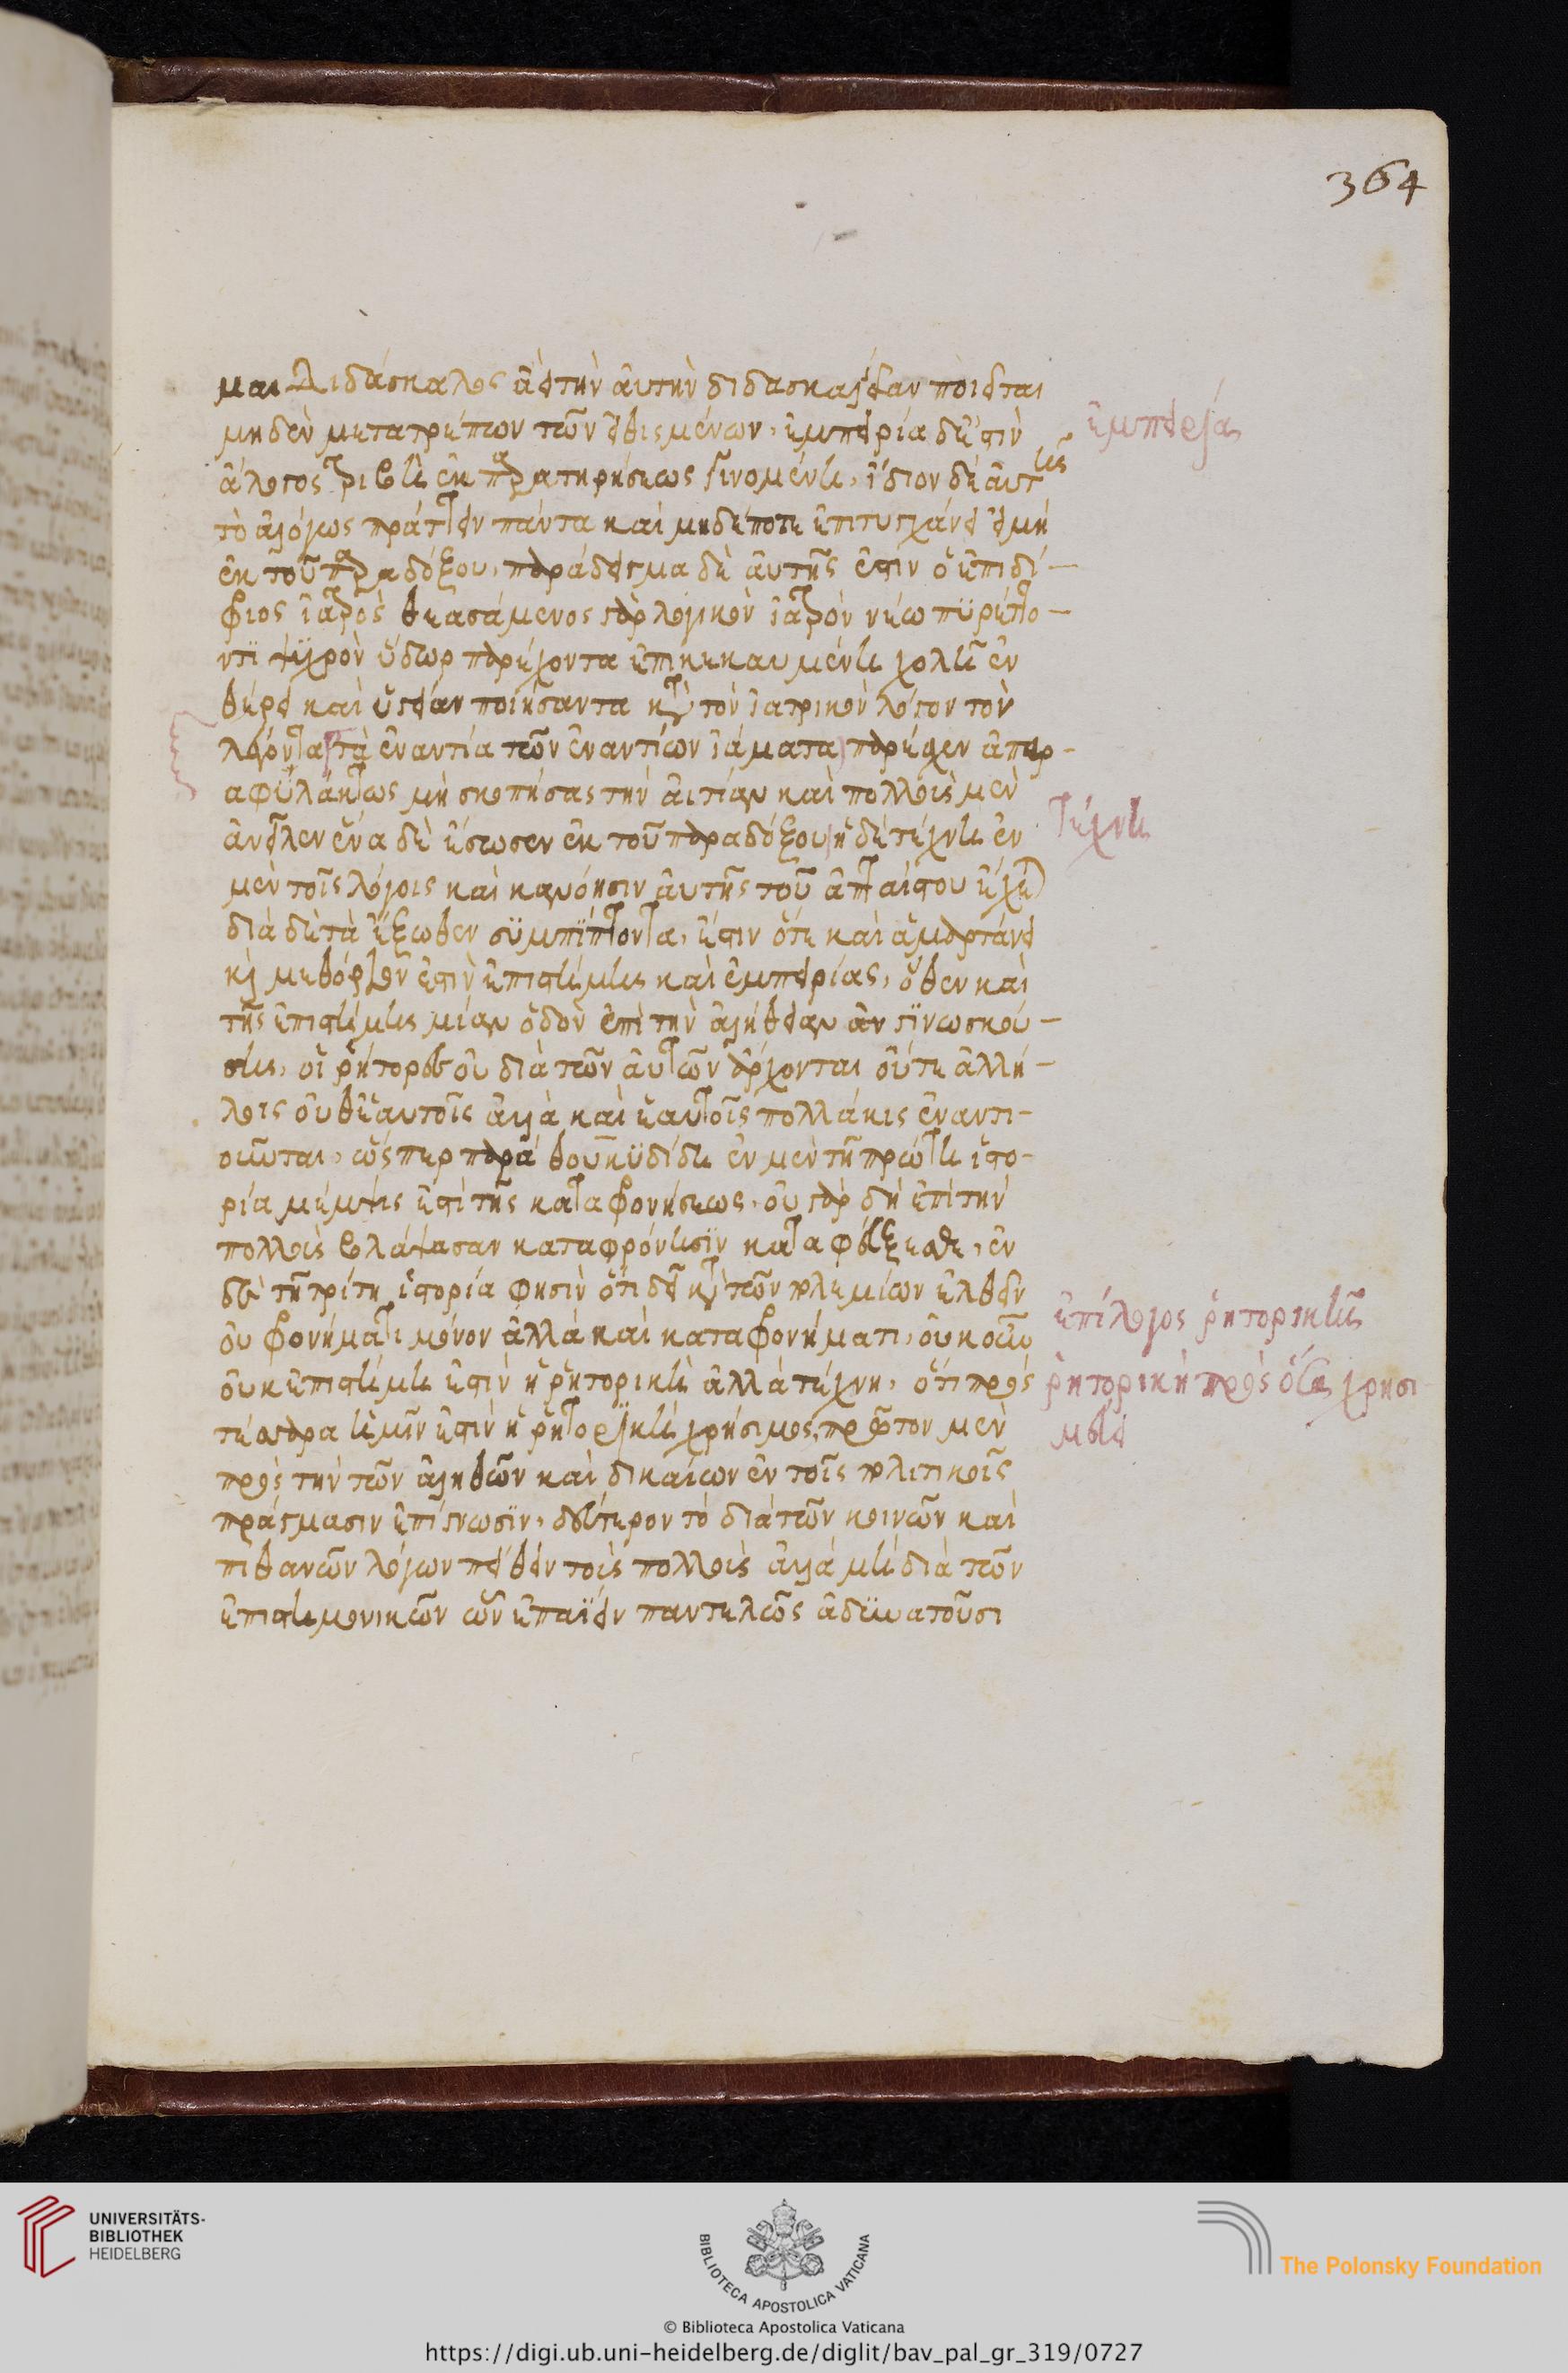 364
μαι Διδάσκαλος ἀεὶ τὴν αὐτὴν διδασκαλίαν ποιεῖται
μηδὲν μετατρέπων τῶν εἰθισμένων, ἐμπειρία δέ ἐστιν
ἐμπειρία
ἄλογος τριβὴ ἐκ παρατηρήσεως γινομένη, ἴδιον δὲ αὐτῆς
τὸ ἀλόγως πράττειν πάντα καὶ μηδέποτε ἐπιτυγχάνει εἰ μὴ
ἐκ τοῦ παραδόξου, παράδειγμα δὲ αὐτῆς ἐστιν ὁ ἐπιδί-
φριος ἰατρὸς θεασάμενος γὰρ λογικὸν ἰατρὸν νέω πυρέττο-
ντι ψυχρὸν ὕδωρ παρέχοντα ἐπὶ κεκαυμένη χολῆ ἐν
θέρει καὶ ὑγείαν ποιήσαντα κατὰ τὸν ἰατρικὸν λόγον τὸν
λέγοντα τὰ ἐναντία τῶν ἐναντίων ἰάματα παρέσχεν ἀπαρ-
αφυλάκτως μὴ σκοπήσας τὴν αἰτίαν καὶ πολλοὺς μὲν
ἀνεῖλεν ἕνα δὲ ἔσωσεν ἐκ τοῦ παραδόξου ἡ δὲ τέχνη ἐν
τέχνη
μὲν τοῖς λόγοις καὶ κανόσιν αὐτῆς τοῦ ἀπταίστου ἔχει
διὰ δὲ τὰ ἔξωθεν συμπίπτοντα, ἔστιν ὅτε καὶ ἁμαρτάνει
καὶ μεθόριον ἐστὶν ἐπιστήμης καὶ ἐμπειρίας, ὅθεν καὶ
τῆς ἐπιστήμης μίαν ὁδὸν ἐπὶ τὴν ἀλήθειαν ἀν γινωσκού-
σης, οἱ ῥήτορες οὐ διὰ τῶν αὐτῶν ἄρχονται οὔτε ἀλλή-
λοις οὐθ' ἑαυτοῖς ἀλλὰ καὶ ἑαυτοῖς πολλάκις ἐναντι-
οῦνται, ὥσπερ παρὰ θουκυδίδη ἐν μὲν τῆ πρώτη ἱστο-
ρία μέμψις ἐστὶ τῆς καταφρονήσεως, οὐ γὰρ δὴ ἐπὶ τὴν
πολλοὺς βλάψασαν καταφρόνησιν κατα, ἐν
δὲ τῆ τρίτη ἱστορία φησὶν ὅτι δεῖ κατὰ τῶν πολεμίων ἐλθεῖν
οὐ φρονήματι μόνον ἀλλὰ καὶ καταφρονήματι, οὐκοῦν
ἐπίλογος ῥητορικῆς
οὐκ ἐπιστήμη ἐστὶν ἡ ῥητορικὴ ἀλλὰ τέχνη, ὅτι πρὸς
ῥητορικὴ πρὸς ὅσα χρησι
τέσσαρα ἡμῖν ἐστὶν ἡ ῥητορικὴ χρήσιμος, πρῶτον μὲν
μεύει
πρὸς τὴν τῶν ἀληθῶν καὶ δικαίων ἐν τοῖς πολιτικοῖς
πράγμασιν ἐπίγνωσιν, δεύτερον τὸ διὰ τῶν κοινῶν καὶ
πιθανῶν λόγων πείθειν τοὺς πολλοὺς ἀλλὰ μὴ διὰ τῶν
ἐπιστημονικῶν ὧν ἐπαΐειν παντελῶς ἀδυνατοῦσι
UNIVERSITÄTS-
BIBLIOTHEK
HEIDELBERG
BIBLIOTECA APOSTOLICA VATICANA
The Polonsky Foundation
© Biblioteca Apostolica Vaticana
https://digi.ub.uni-heidelberg.de/diglit/bav_pal_gr_319/0727